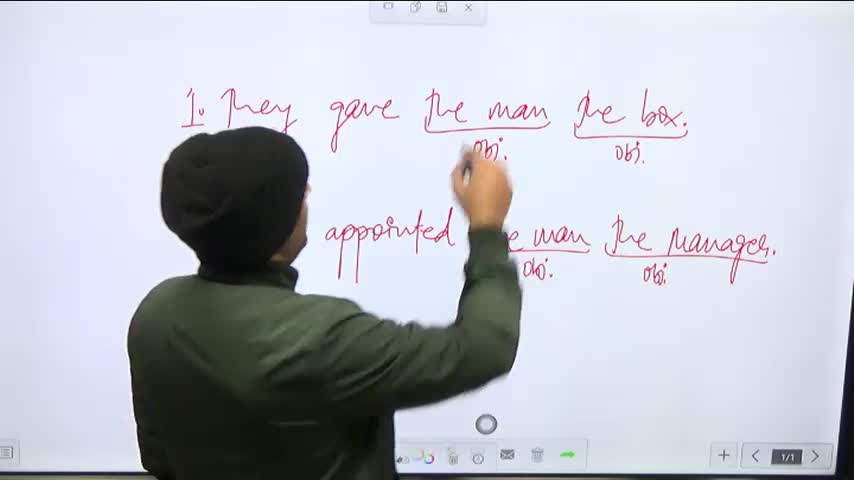 1. They gave the man the box.
obj. obj.
appointed man the manager.
obj. obj.
1/1